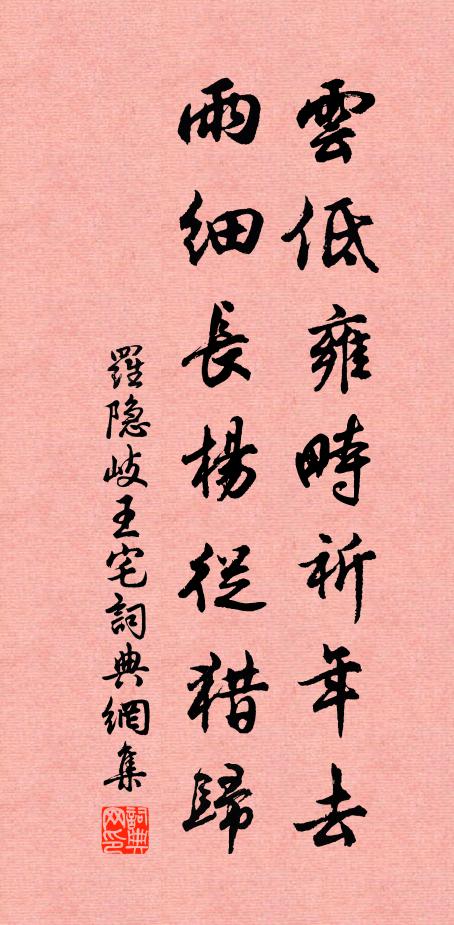 雲低雍畤祈年去
雨細長楊從猎歸
羅隐岐王宅詞典網集
詞典网印